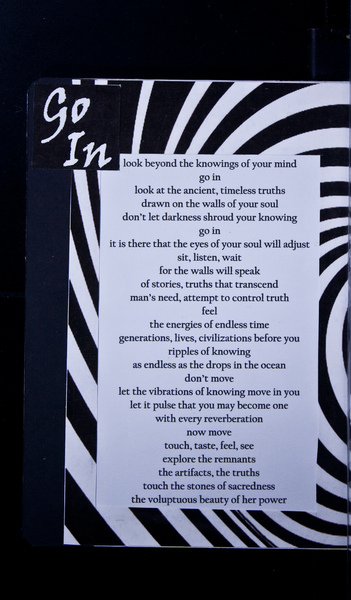 Go
In
look beyond the knowings of your mind
go in
look at the ancient, timeless truths
drawn on the walls of your soul
don't let darkness shroud your knowing
go in
it is there that the eyes of your soul will adjust
sit, listen, wait
for the walls will speak
of stories, truths that transcend
man's need, attempt to control truth
feel
the energies of endless time
generations, lives, civilizations before you
ripples of knowing
as endless as the drops in the ocean
don't move
let the vibrations of knowing move in you
let it pulse that you may become one
with every reverberation
now move
touch, taste, feel, see
explore the remnants
the artifacts, the truths
touch the stones of sacredness
the voluptuous beauty of her power